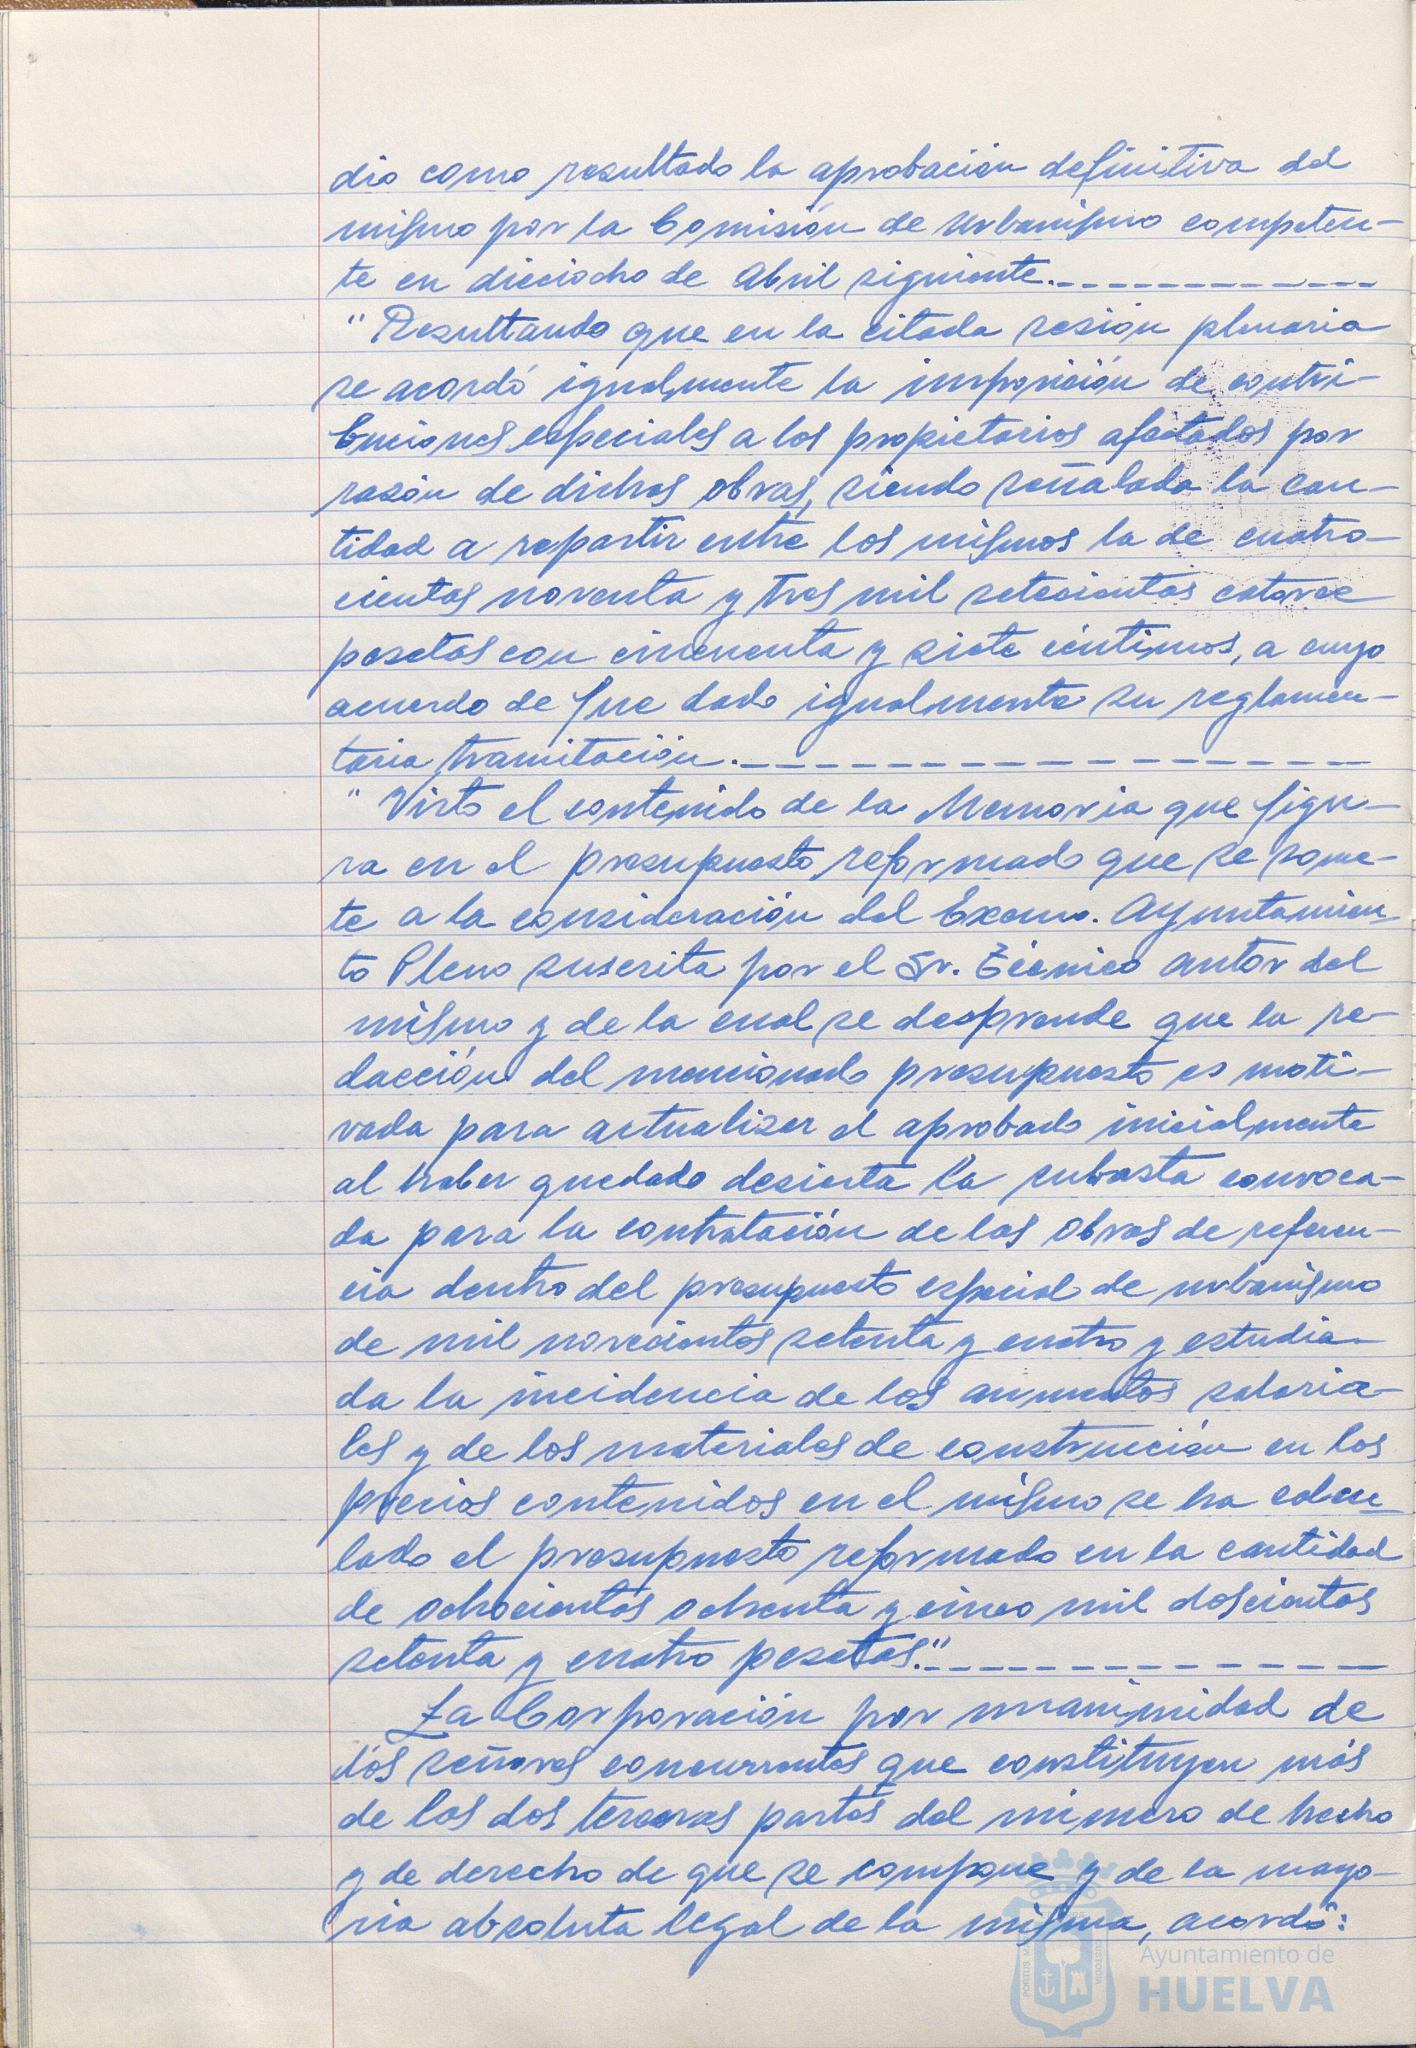 dio como resultado la aprobación definitiva del
mismo por la Comisión de Urbanismo competen-
te en dieciocho de Abril siguiente.
"Resultando que en la citada sesión plenaria
se acordó igualmente la imposición de contri-
buciones especiales a los propietarios afectados por
razón de dichas obras, siendo señalada la can-
tidad a repartir entre los mismos la de cuatro-
cientas noventa y tres mil setecientas catorce
pesetas con cincuenta y siete céntimos, a cuyo
acuerdo de fue dado igualmente su reglamen-
taria tramitación.
"Visto el contenido de la Memoria que figu-
ra en el presupuesto reformado que se some-
te a la consideración del Excmo. Ayuntamien-
to Pleno suscrita por el Sr. Técnico autor del
mismo y de la cual se desprende que la re-
dacción del mencionado presupuesto es moti-
vada para actualizar el aprobado inicialmente
al haber quedado desierta la subasta convoca-
da para la contratación de las obras de referen-
cia dentro del presupuesto especial de urbanismo
de mil novecientos setenta y cuatro y estudia-
da la incidencia de los aumentos salaria-
les y de los materiales de construcción en los
precios contenidos en el mismo se ha calcu-
lado el presupuesto reformado en la cantidad
de ochocientas ochenta y cinco mil doscientas
setenta y cuatro pesetas."
La Corporación por unanimidad de
los señores concurrentes que constituyen más
de las dos terceras partes del número de hecho
y de derecho de que se compone y de la mayo-
ria absoluta legal de la misma, acordó:
Ayuntamiento de
HUELVA